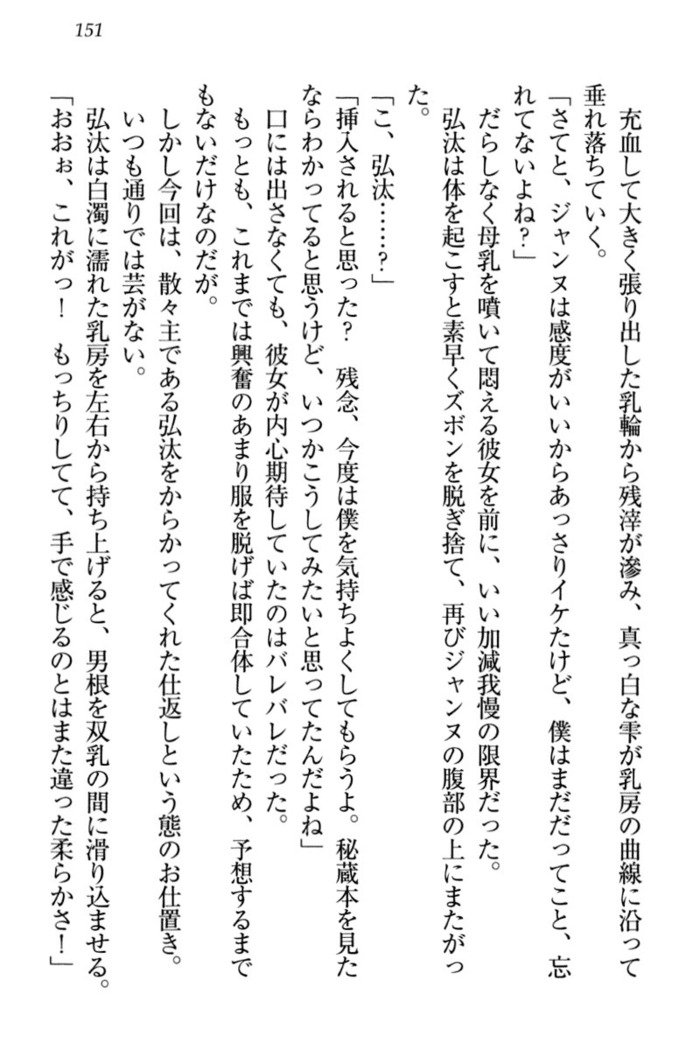 151
充血して大きく張り出した乳輪から残滓が滲み、真っ白な雫が乳房の曲線に沿って
垂れ落ちていく。
「さてと、ジャンヌは感度がいいからあっさりイケたけど、僕はまだだってこと、忘
れてないよね？」
だらしなく母乳を噴いて悶える彼女を前に、いい加減我慢の限界だった。
弘汰は体を起こすと素早くズボンを脱ぎ捨て、再びジャンヌの腹部の上にまたがっ
た。
「こ、弘汰……？」
「挿入されると思った？　残念、今度は僕を気持ちよくしてもらうよ。秘蔵本を見た
ならわかってると思うけど、いつかこうしてみたいと思ってたんだよね」
口には出さなくても、彼女が内心期待していたのはバレバレだった。
もっとも、これまでは興奮のあまり服を脱げば即合体していたため、予想するまで
もないだけなのだが。
しかし今回は、散々主である弘汰をからかってくれた仕返しという態のお仕置き。
いつも通りでは芸がない。
弘汰は白濁に濡れた乳房を左右から持ち上げると、男根を双乳の間に滑り込ませる。
「おおぉ、これがっ！　もっちりしてて、手で感じるのとはまた違った柔らかさ！」